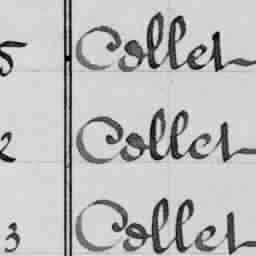 5 Collet
2 Collet
3 Collet